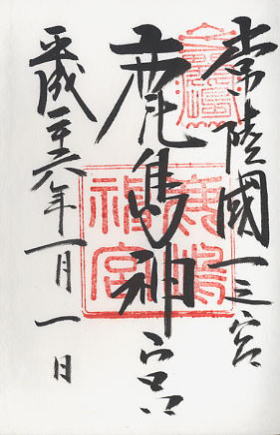 常陸國一之宮
鹿島神宮
平成二十六年一月一日
鹿島神宮